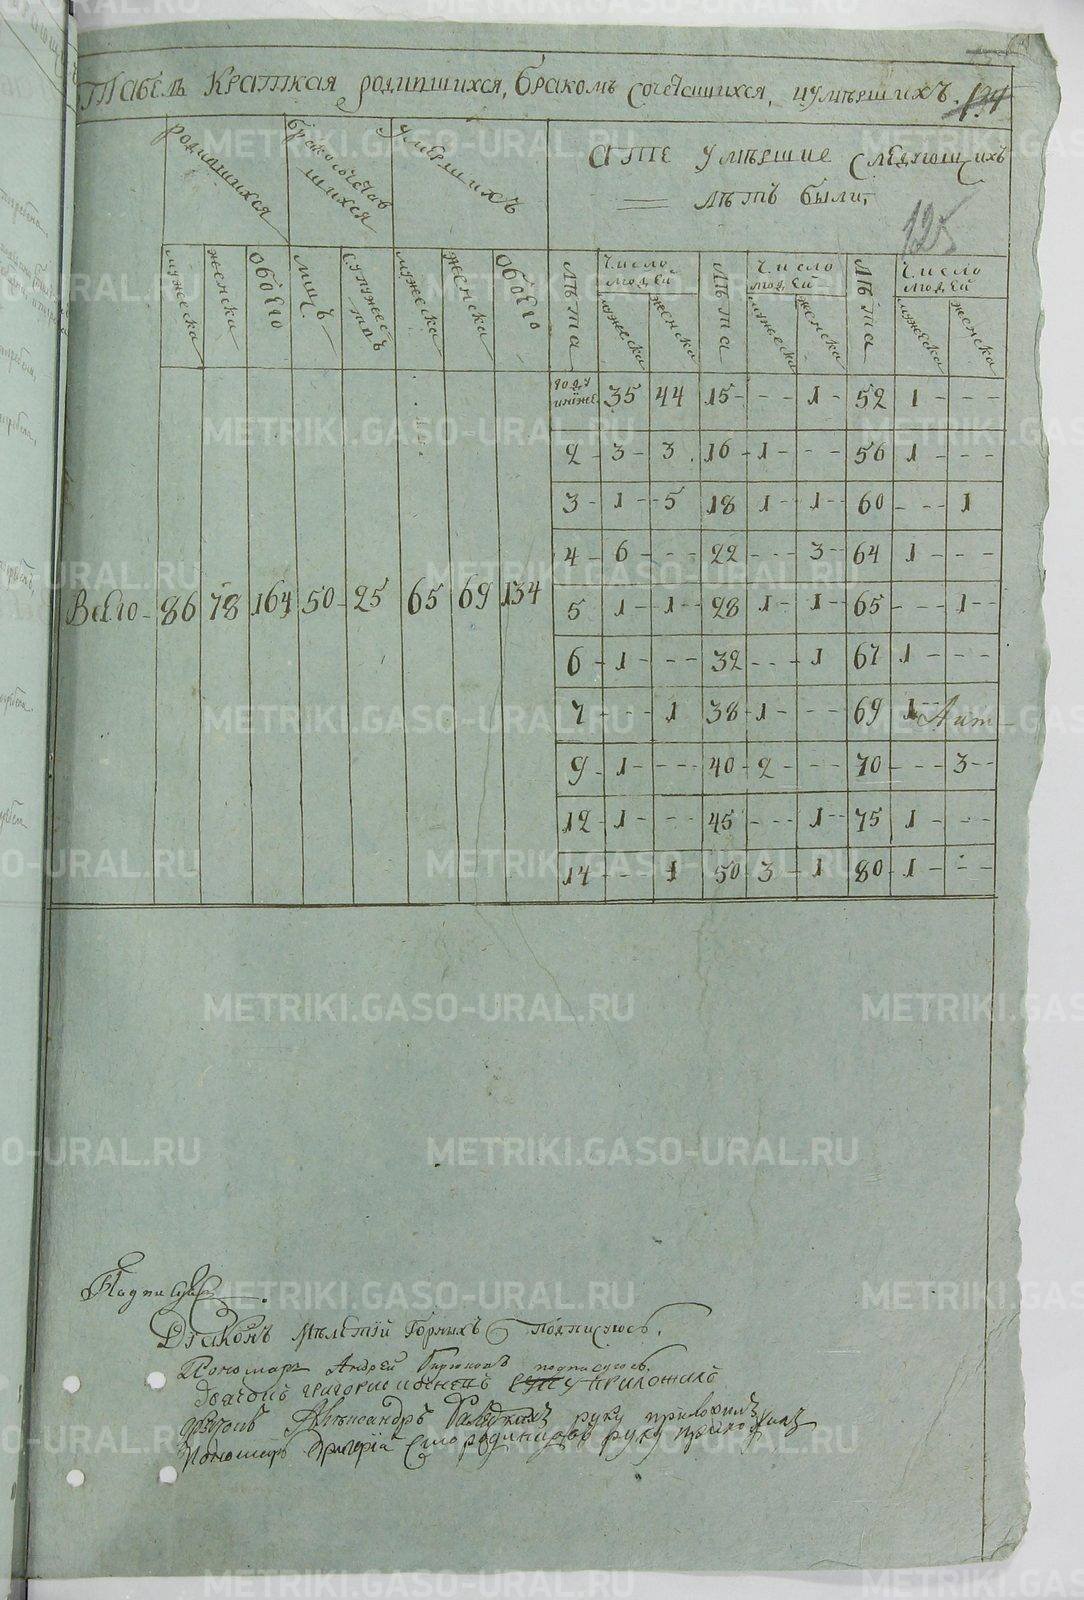 Табель Краткая родившихся, бракомъ сочетавшихся, иумершихъ. 134
родившихся
бракосочетав
шихся
Умершихъ
Ате умершие следующихъ
летъ были,
125
мужеска
женска
обоего
лицъ
супружес
тв
мужеска
женска
обоего
лета
Число
людей
мужеска
женска
лета
Число
людей
мужеска
женска
лета
Число
людей
мужеска
женска
году
35 44 15 - - - 1 - 52 1 - - -
2 - 3 - 3 . 16 - 1 - - - 56 1 - - -
3 - 1 - 5 18 1 - 1 - 60 - - - 1
4 - 6 - - - 22 - - - 3 - 64 1 - - -
Всего - 86 78 164 50 - 25 65 69 134
5 1 - 1 - 28 1 - 1 - 65 - - - 1 -
6 - 1 - - - 32 - - - 1 67 1 - - -
7 - - - 1 38 - 1 - - - 69 1
9 - 1 - - - 40 - 2 - - - 70 - - - 3 - -
12 - 1 - - - 45 - - - 1 - 75 1 - - -
14 - - - 1 50 - 3 - 1 80 - 1 - - - -
Диаконъ Мелетий Горныхъ подписуюсь.
Пономарь Андрей подписуюсь.
приложилъ
Александръ руку приложилъ
Пономарь Григорий руку приложилъ
METRIKI.GASO-URAL.RU